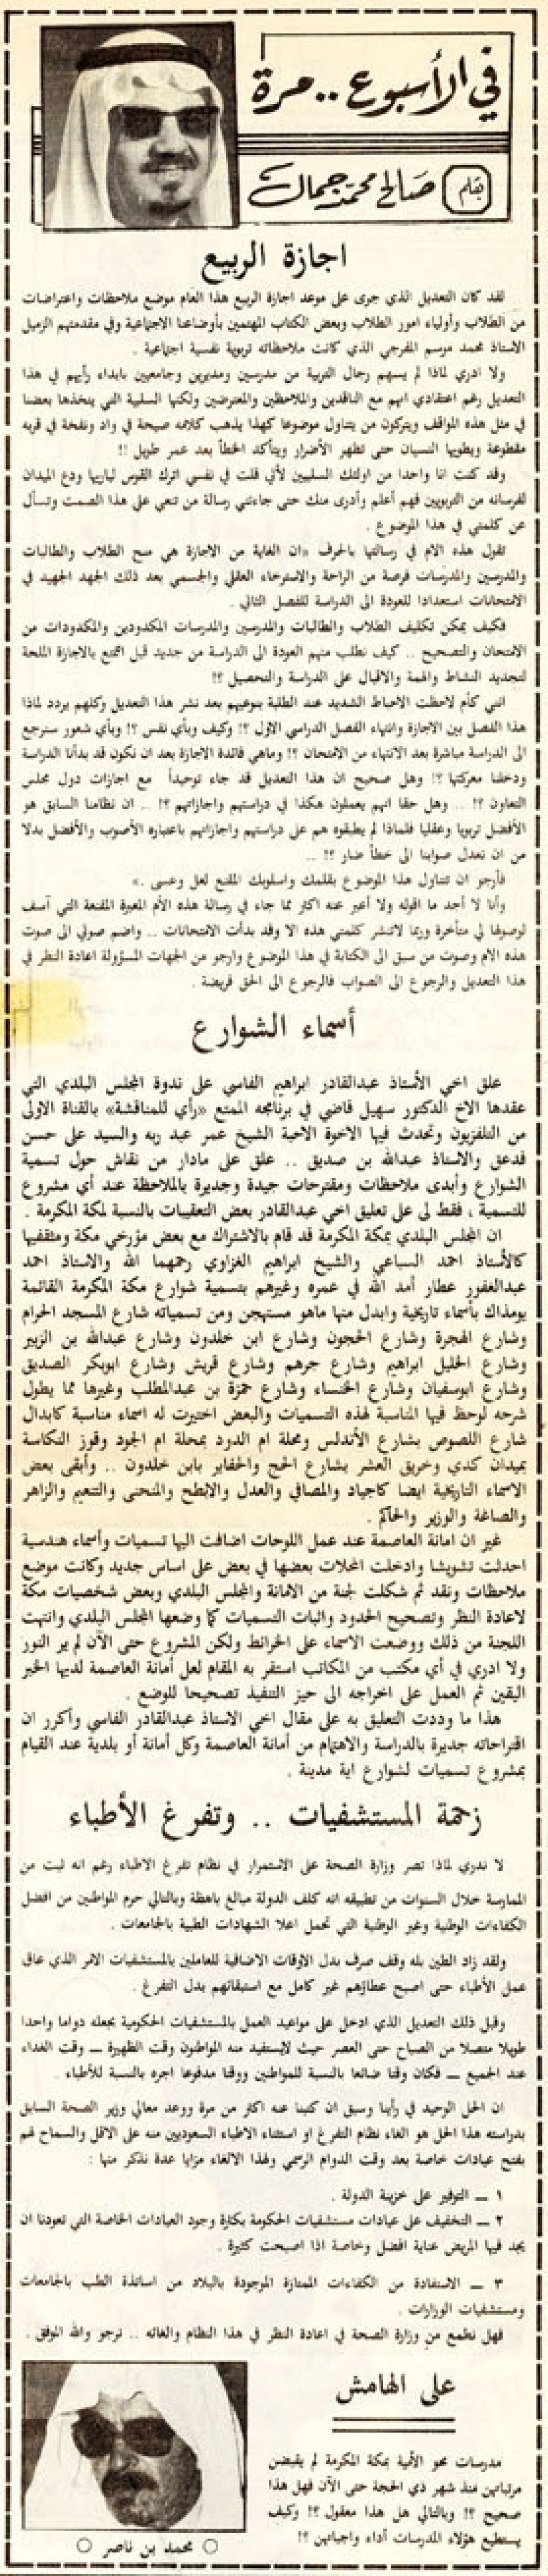 في الأسبوع .. مرة
بقلم صالح محمد جمال
اجازة الربيع
لقد كان التعديل الذي جرى على موعد اجازة الربيع هذا العام موضع ملاحظات واعتراضات
من الطلاب وأولياء امور الطلاب وبعض الكتاب المهتمين بأوضاعنا الاجتماعية وفي مقدمتهم الزميل
الاستاذ محمد موسم المفرجي الذي كانت ملاحظاته تربوية نفسية اجتماعية .
ولا ادري لماذا لم يسهم رجال التربية من مدرسين ومديرين وجامعيين بابداء رأيهم في هذا
التعديل رغم اعتقادي انهم مع الناقدين والملاحظين والمعترضين ولكنها السلبية التي يتخذها بعضنا
في مثل هذه المواقف ويتركون من يتناول موضوعا كهذا يذهب كلامه صيحة في واد ونفخة في قربة
مقطوعة ويطويها النسيان حتى تظهر الأضرار ويتأكد الخطأ بعد عمر طويل !!
وقد كنت انا واحدا من اولئك السلبيين لأني قلت في نفسي اترك القوس لباريها ودع الميدان
لفرسانه من التربويين فهم أعلم وأدرى منك حتى جاءتني رسالة من تنعي على هذا الصمت وتسأل
عن كلمتي في هذا الموضوع .
تقول هذه الام في رسالتها بالحرف «ان الغاية من الاجازة هي منح الطلاب والطالبات
والمدرسين والمدرسات فرصة من الراحة والاسترخاء العقلي والجسمي بعد ذلك الجهد الجهيد في
الامتحانات استعدادا للعودة الى الدراسة للفصل الثاني .
فكيف يمكن تكليف الطلاب والطالبات والمدرسين والمدرسات المكدودين والمكدودات من
الامتحان والتصحيح .. كيف نطلب منهم العودة الى الدراسة من جديد قبل التمتع بالاجازة الملحة
لتجديد النشاط والهمة والاقبال على الدراسة والتحصيل ؟!
انني كأم لاحظت الاحباط الشديد عند الطلبة بنوعيهم بعد نشر هذا التعديل وكلهم يردد لماذا
هذا الفصل بين الاجازة وانتهاء الفصل الدراسي الاول ؟! وكيف وبأي نفس ؟! وبأي شعور سنرجع
الى الدراسة مباشرة بعد الانتهاء من الامتحان ؟! وماهي فائدة الاجازة بعد ان نكون قد بدأنا الدراسة
ودخلنا معركتها ؟! وهل صحيح ان هذا التعديل قد جاء توحيداً مع اجازات دول مجلس
التعاون ؟! .. وهل حقا انهم يعملون هكذا في دراستهم واجازاتهم ؟! .. ان نظامنا السابق هو
الأفضل تربويا وعقليا فلماذا لم يطبقوه هم على دراستهم واجازاتهم باعتباره الأصوب والأفضل بدلا
من ان نعدل صوابنا الى خطأ ضار ؟! ..
فأرجو ان تتناول هذا الموضوع بقلمك واسلوبك المقنع لعل وعسى .»
وأنا لا أجد ما اقوله ولا أعبر عنه اكثر مما جاء في رسالة هذه الأم المعبرة المقنعة التي آسف
لوصولها لي متأخرة وربما لاتنشر كلمتي هذه الا وقد بدأت الامتحانات .. واضم صوتي الى صوت
هذه الام وصوت من سبق الى الكتابة في هذا الموضوع وارجو من الجهات المسؤولة اعادة النظر في
هذا التعديل والرجوع الى الصواب فالرجوع الى الحق فريضة .
أسماء الشوارع
علق اخي الأستاذ عبدالقادر ابراهيم الفاسي على ندوة المجلس البلدي التي
عقدها الاخ الدكتور سهيل قاضي في برنامجه الممتع «رأي للمناقشة» بالقناة الاولى
من التلفزيون وتحدث فيها الاخوة الاحبة الشيخ عمر عبد ربه والسيد على حسن
فدعق والاستاذ عبدالله بن صديق .. علق على مادار من نقاش حول تسمية
الشوارع وأبدى ملاحظات ومقترحات جيدة وجديرة بالملاحظة عند أي مشروع
للتسمية ، فقط لي على تعليق اخي عبدالقادر بعض التعقيبات بالنسبة لمكة المكرمة .
ان المجلس البلدي بمكة المكرمة قد قام بالاشتراك مع بعض مؤرخي مكة ومثقفيها
كالأستاذ احمد السباعي والشيخ ابراهيم الغزاوي رحمهما الله والاستاذ احمد
عبدالغفور عطار أمد الله في عمره وغيرهم بتسمية شوارع مكة المكرمة القائمة
يومذاك بأسماء تاريخية وابدل منها ماهو مستهجن ومن تسمياته شارع المسجد الحرام
وشارع الهجرة وشارع الحجون وشارع ابن خلدون وشارع عبدالله بن الزبير
وشارع الخليل ابراهيم وشارع جرهم وشارع قريش وشارع ابوبكر الصديق
وشارع ابوسفيان وشارع الخنساء وشارع حمزة بن عبدالمطلب وغيرها مما يطول
شرحه لوحظ فيها المناسبة لهذه التسميات والبعض اختيرت له اسماء مناسبة كابدال
شارع اللصوص بشارع الأندلس ومحلة ام الدود بمحلة ام الجود وقوز النكاسة
بميدان كدي وخريق العشر بشارع الحج والحفاير بابن خلدون .. وأبقى بعض
الاسماء التاريخية ايضا كاجياد والمصافي والعدل والابطح والمنحنى والتنعيم والزاهر
والصاغة والوزير والحاكم .
غير ان امانة العاصمة عند عمل اللوحات اضافت اليها تسميات وأسماء هندسية
احدثت تشويشا وادخلت المحلات بعضها في بعض على اساس جديد وكانت موضع
ملاحظات ونقد ثم شكلت لجنة من الامانة والمجلس البلدي وبعض شخصيات مكة
لاعادة النظر وتصحيح الحدود واثبات التسميات كما وضعها المجلس البلدي وانتهت
اللجنة من ذلك ووضعت الاسماء على الخرائط ولكن المشروع حتى الآن لم ير النور
ولا ادري في أي مكتب من المكاتب استقر به المقام لعل أمانة العاصمة لديها الخبر
اليقين ثم العمل على اخراجه الى حيز التنفيذ تصحيحا للوضع .
هذا ما وددت التعليق به على مقال اخي الاستاذ عبدالقادر الفاسي وأكرر ان
اقتراحاته جديرة بالدراسة والاهتمام من أمانة العاصمة وكل أمانة أو بلدية عند القيام
بمشروع تسميات لشوارع اية مدينة .
زحمة المستشفيات .. وتفرغ الأطباء
لا ندري لماذا تصر وزارة الصحة على الاستمرار في نظام تفرغ الاطباء رغم انه ثبت من
الممارسة خلال السنوات من تطبيقه انه كلف الدولة مبالغ باهظة وبالتالي حرم المواطنين من افضل
الكفاءات الوطنية وغير الوطنية التي تحمل اعلا الشهادات الطبية بالجامعات .
ولقد زاد الطين بله وقف صرف بدل الأوقات الاضافية للعاملين بالمستشفيات الامر الذي عاق
عمل الأطباء حتى اصبح عطاؤهم غير كامل مع استبقائهم بدل التفرغ .
وقبل ذلك التعديل الذي ادخل على مواعيد العمل بالمستشفيات الحكومية بجعله دواما واحدا
طويلا متصلا من الصباح حتى العصر حيث لايستفيد منه المواطنون وقت الظهيرة ــ وقت الغداء
عند الجميع ــ فكان وقتا ضائعا بالنسبة للمواطنين ووقتا مدفوعا اجره بالنسبة للأطباء .
ان الحل الوحيد في رأينا وسبق ان كتبنا عنه اكثر من مرة ووعد معالي وزير الصحة السابق
بدراسته هذا الحل هو الغاء نظام التفرغ او استثناء الاطباء السعوديين منه على الاقل والسماح لهم
بفتح عيادات خاصة بعد وقت الدوام الرسمي ولهذا الالغاء مزايا عدة نذكر منها :
١ ــ التوفير على خزينة الدولة .
٢ ــ التخفيف على عيادات مستشفيات الحكومة بكثرة وجود العيادات الخاصة التي تعودنا ان
يجد فيها المريض عناية افضل وخاصة اذا اصبحت كثيرة .
٣ ــ الاستفادة من الكفاءات الممتازة الموجودة بالبلاد من اساتذة الطب بالجامعات
ومستشفيات الوزارات .
فهل نطمع من وزارة الصحة في اعادة النظر في هذا النظام والغائه .. نرجو والله الموفق .
على الهامش
مدرسات محو الأمية بمكة المكرمة لم يقبضن
مرتباتهن منذ شهر ذي الحجة حتى الآن فهل هذا
صحيح ؟! وبالتالي هل هذا معقول ؟! وكيف
يستطيع هؤلاء المدرسات أداء واجباتهن ؟!
○ محمد بن ناصر ○